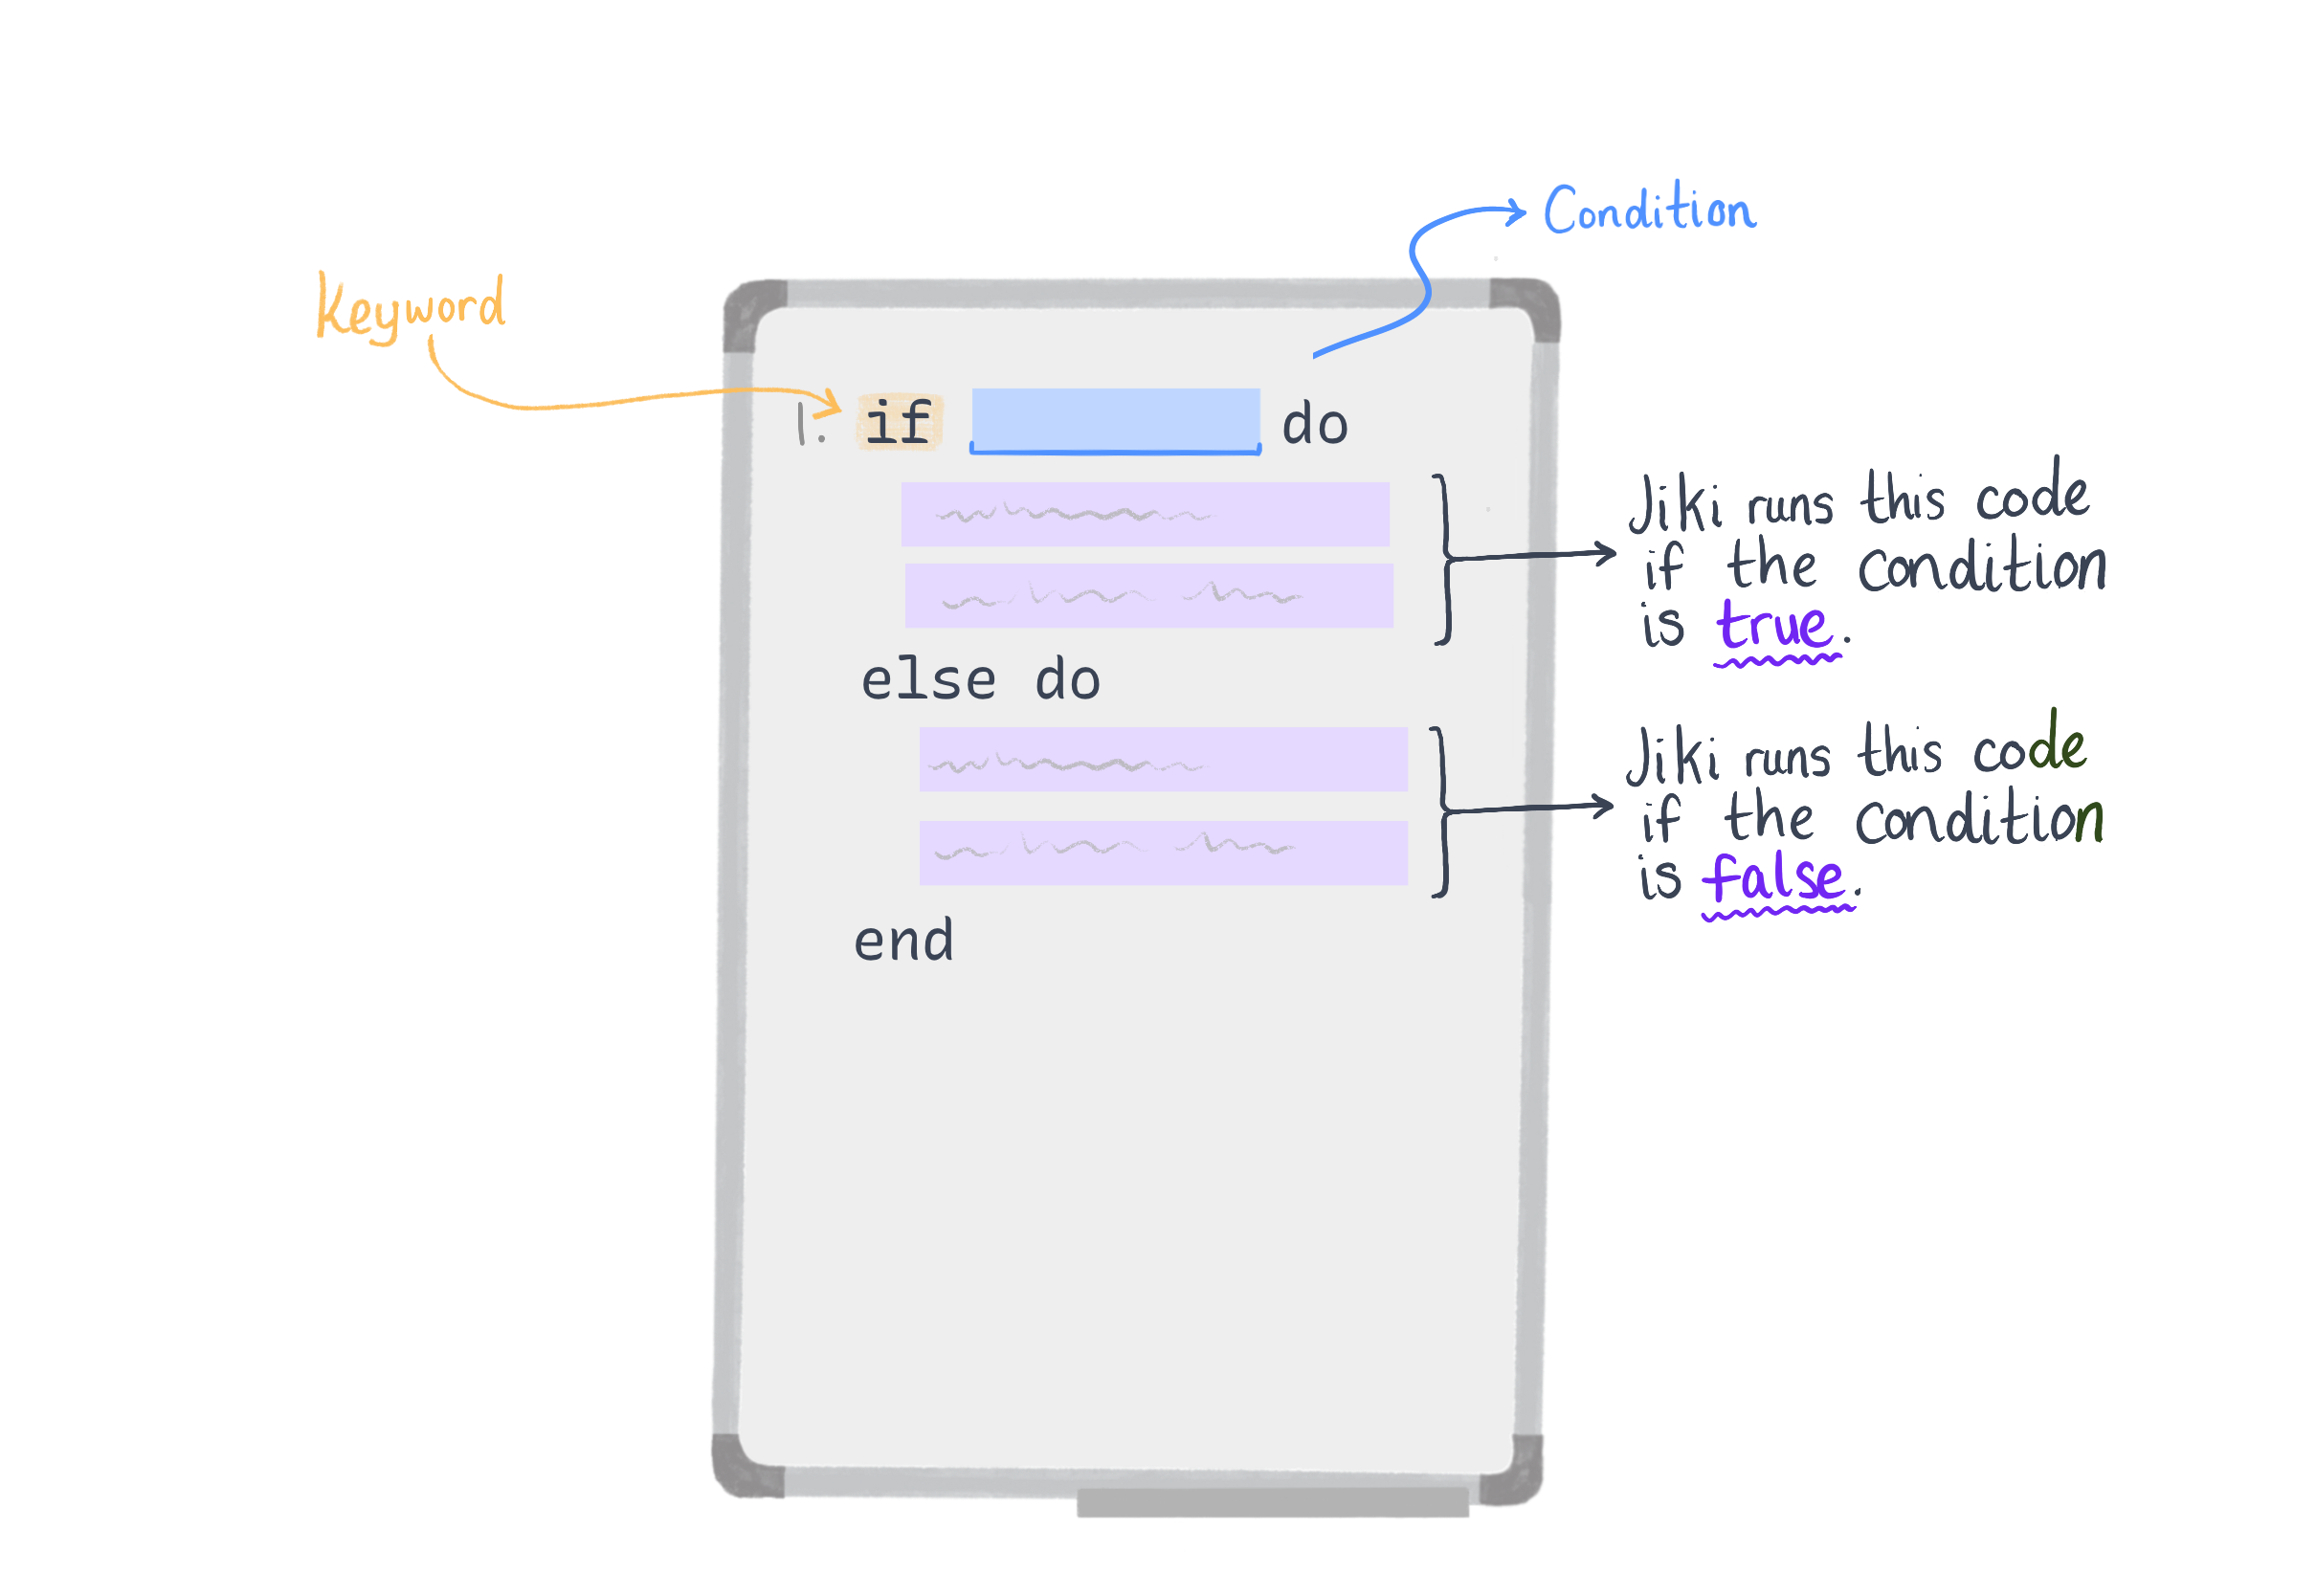 Condition
keyword
1. if do
Jiki runs this code
if the condition
is true.
else do
Jiki runs this code
if the condition
is false.
end